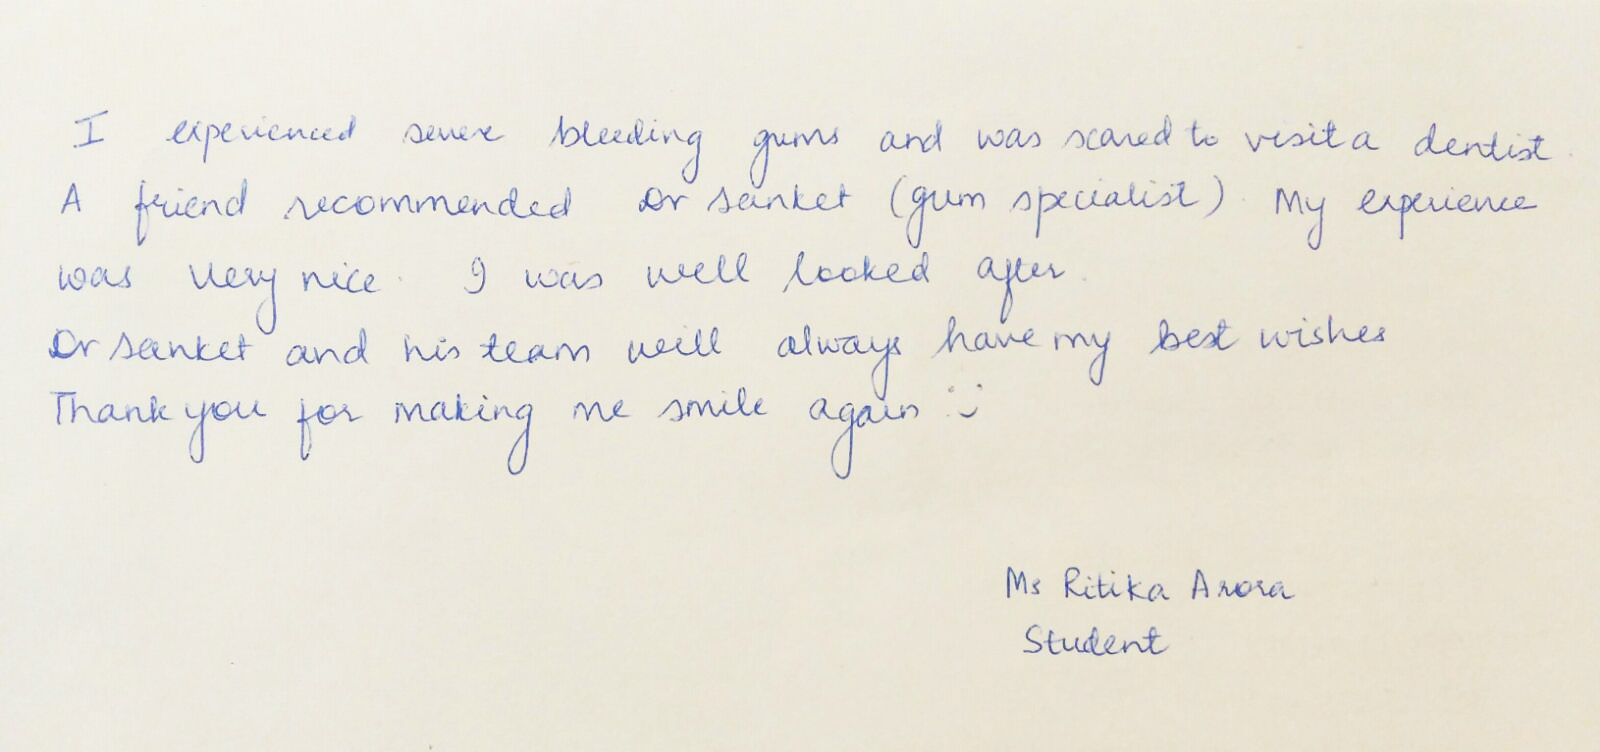 I experienced severe bleeding gums and was scared to visit a dentist.
A friend recommended Dr Sanket (gum specialist). My experience
was very nice. I was well looked after.
Dr Sanket and his team will always have my best wishes
Thank you for making me smile again :)
Ms Ritika Arora
Student